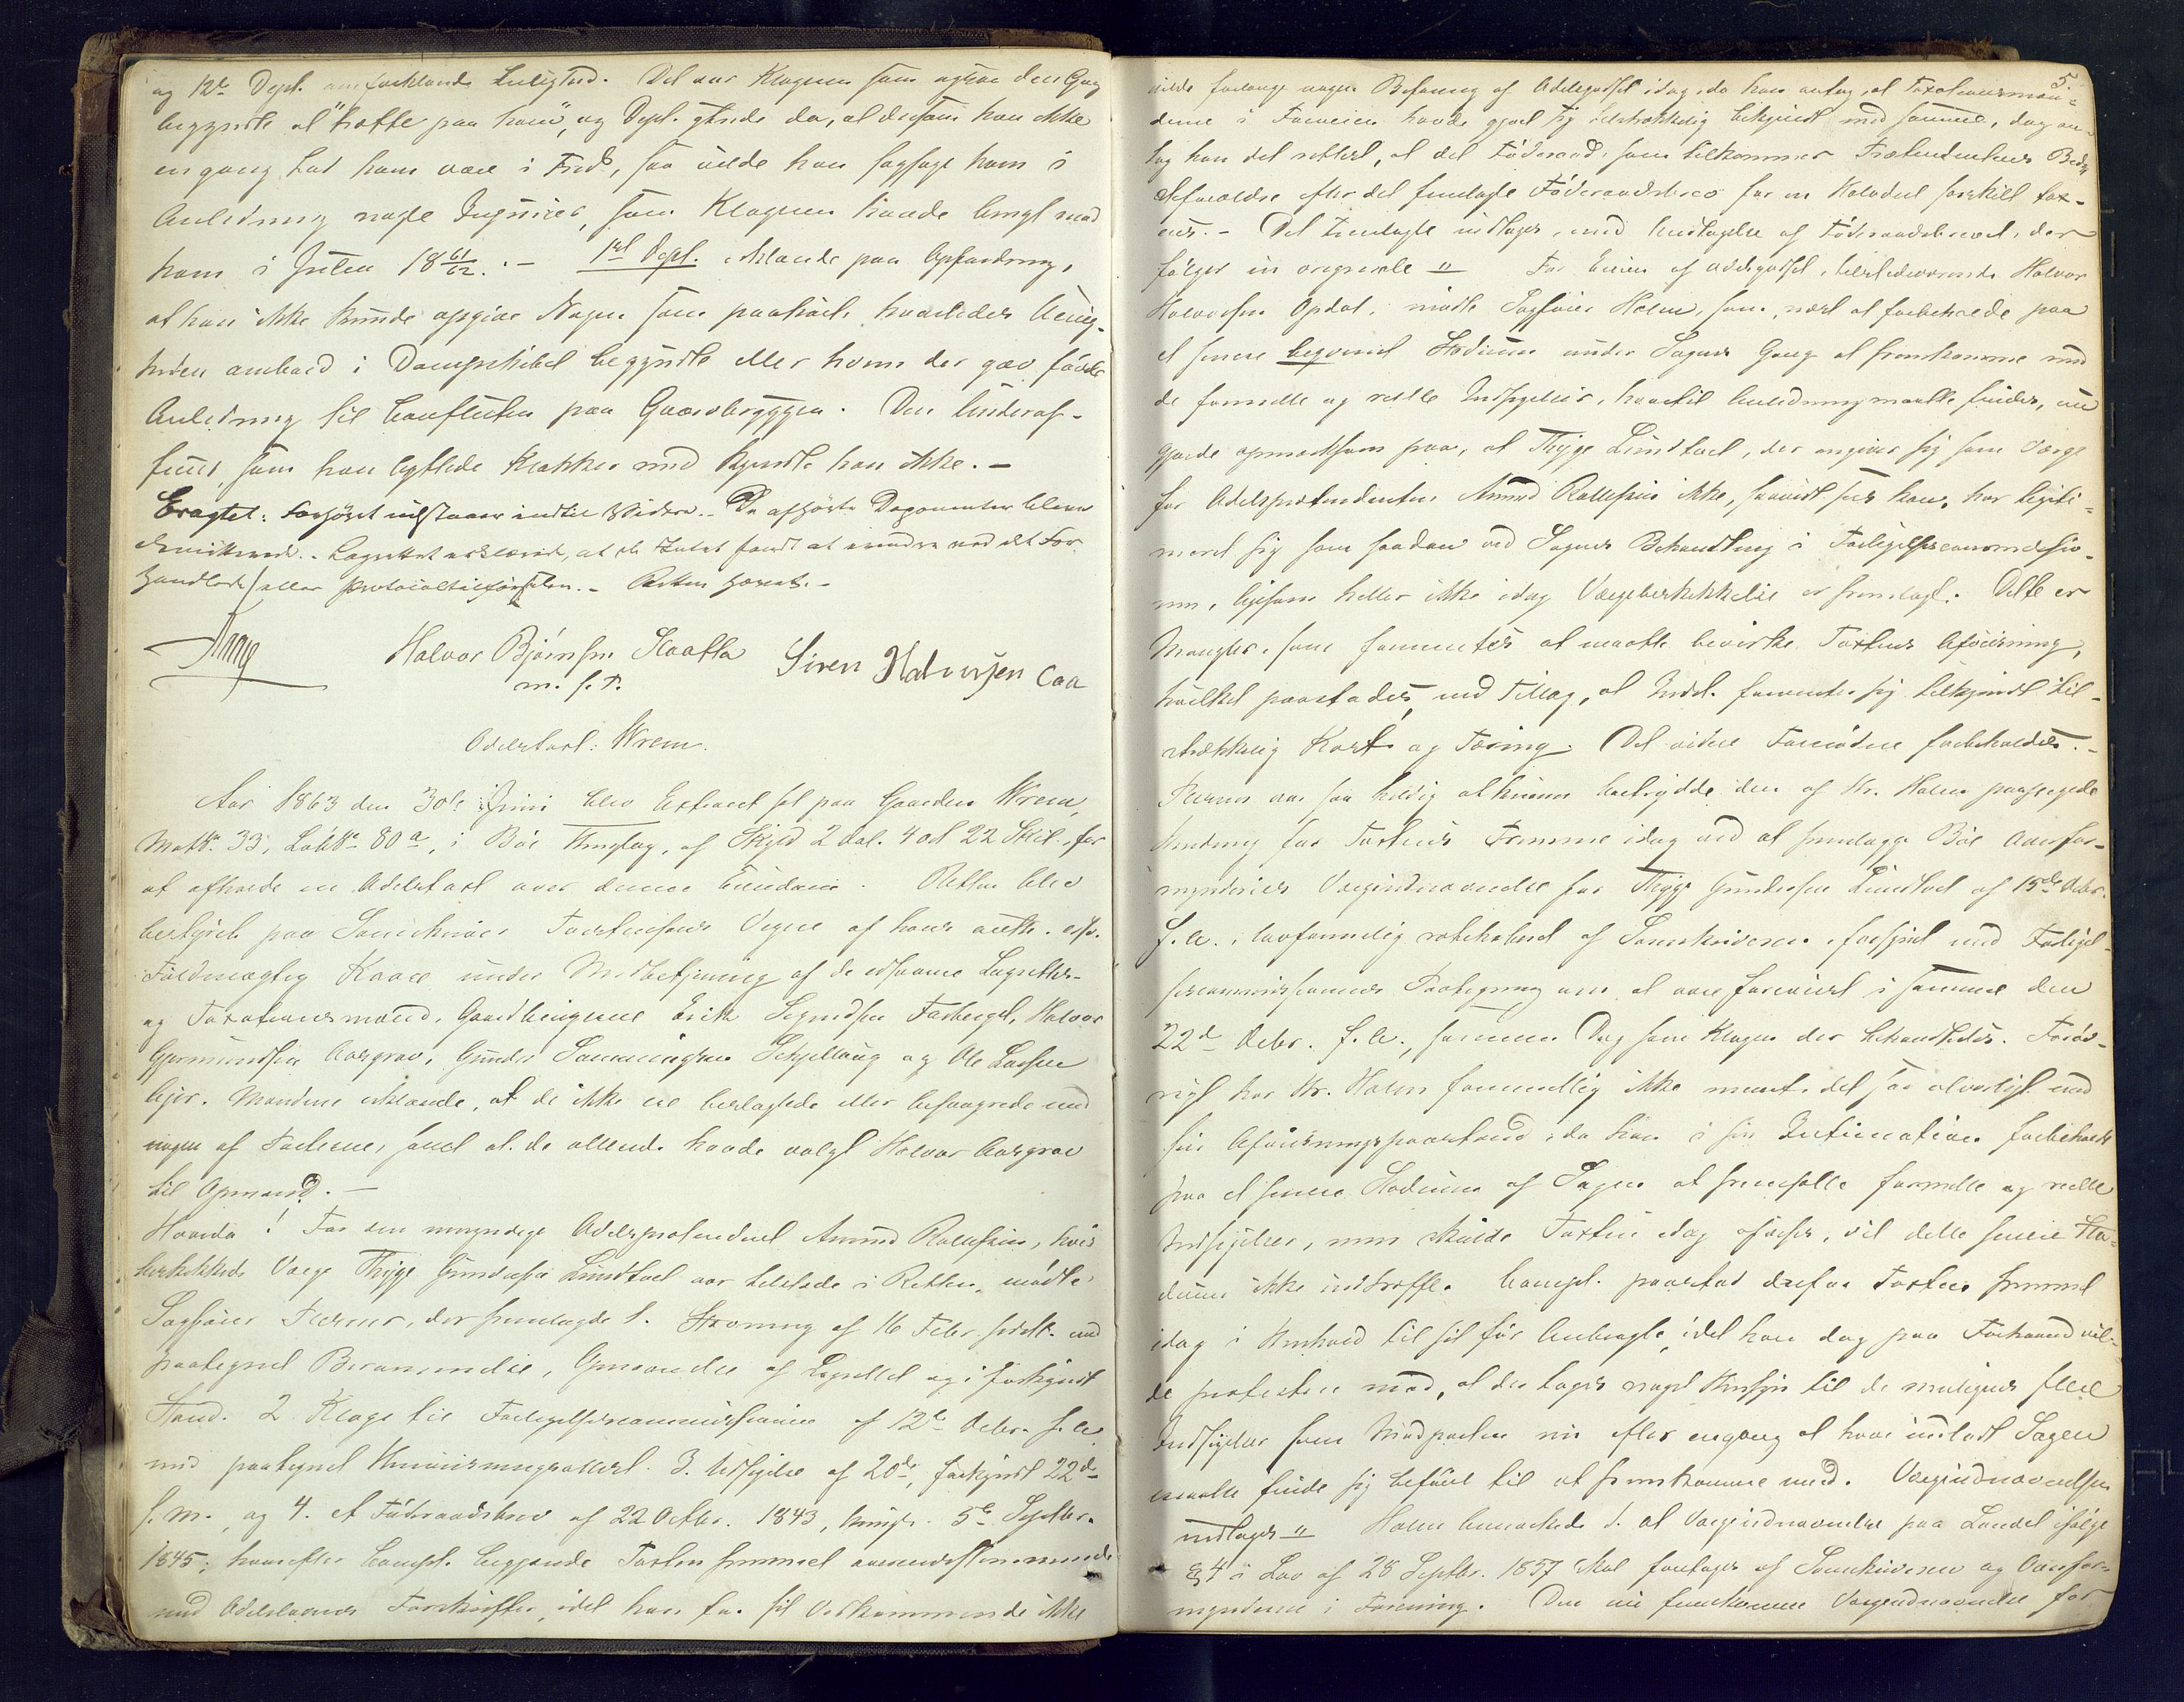 og 12te Dept. omforklarede Leilighed. Det var Klageren som ogsaa den Gang
begyndte at "koffte paa ham", og Dept. ytrede da, at dersom han ikke
engang lod ham være i Fred, saa vilde han sagsøge ham i
Anledning nogle Injurier, som Klageren havde brugt mod
ham i Julen 1861/62. — 1ste Dept. erklærede paa Opfordring,
at han ikke kunde opgive Nogen som paahørte hvorledes Uenig-
heden ombord i Dampskibet begyndte eller hvem der gav første
Anledning til Conflicten paa Gvarvbryggen. Den Underof-
ficeer, som han løftede Krakken med kjendte han ikke. —
Eragtet: Forhøret udstaaer indtil Videre. — De afhørte Deponenter bleve
demitterede. — Lagrettet erklærede, at de Intet fandt at erindre ved det For-
handlede eller Protocoltilførselen. — Retten hævet. —
Halvor Bjørnsen Staatta Siren Halvorsen Caa
m. f. P.
Odelstaxt: Wrem.
Aar 1863 den 30te Juni blev Extraret sat paa Gaarden Wrem,
Matr. 33, Løbr. 80a, i Bøe Thinglag, af Skyld 2 Dal. 4 ort 22 Skil., for
at afholde en Odelstaxt over denne Eiendom. Retten blev
bestyret paa Sorenskriver Vegne af hans auth. csf.
Fuldmægtig Kaare under Medbetjening af de edsvorne Lagrettes-
og Taxationsmænd, Gaardbrugerne Erik Sigurdsen Forberget, Halvor
Gjermundsen Aasgrav, Gunder Sjellaug og Ole Larsen
Lejer. Mændene erklærede, at de ikke ere beslægtede eller besvogrede med
nogen af Parterne, samt at de allerede havde valgt Halvor Aasgrav
til Opmand. —
Hvorda! For den umyndige Odelsprætendent Amund Rollefsen, hvis
beskikkede Værge Thyge Gundersen Lindtvet var tilstede i Retten, mødte
Sagfører Flerner, der fremlagde 1. Stevning af 16 Febr. sidstl. med
paategnet Berammelse, Opnævnelse af Lagrettet og i forkyndt
Stand. 2 Klage til Forligelsescommissionen af 12te Decbr. f. A.
med paategnet Henviisningsattest. 3. Udsigelse af 20de, forkyndt 22de
s. M., og 4. et Føderaadsbrev af 22 Octbr. 1843, thingl. 5te Septbr.
1845; hvorefter Compt. begjærede Taxten fremmet overensstemmende
med Odelslovens Forskrifter, idet han for sit Vedkommende ikke
5.
vilde forlange nogen Befaring af Odelsgodset idag, da han antog, at Taxationsmæn-
dene i Forveien havde gjort sig tilstrækkelig bekjendt med samme, dog an-
tog han det rettest, at det Føderaad, som tilkommer Prætendentens Beds-
teforældre efter det fremlagte Føderaadsbrev for en Halvdeel særskilt tax-
eres. — Det Fremlagte indtages, med Undtagelse af Føderaadsbrevet, der
følger in originale " For Eieren af Odelsgodset, tilstedeværende Halvor
Halvorsen Opdal, mødte Sagfører Holm, som, næst at forbeholde paa
et senere beqvemt Stadium under Sagens Gang at fremkomme med
de formelle og reelle Indsigelser, hvortil Anledning maatte findes, nu
gjorde opmærksom paa, at Thyge Lindtvet, der angiver sig som Værge
for Odelsprætendenten Amund Rollefsen ikke, saavidt sees kan, har legiti-
meret sig som saadan ved Sagens Behandling i Forligelsescommissio-
nen, ligesom heller ikke idag Værgebeskikkelse er fremlagt. Dette er
Mangler, som formentes at maatte bevirke Taxtens Afvisning,
hvilket paastodes, med Tillæg, at Indst. formentes sig tilkjendt til-
strækkelig Kost og Tæring. Det videre Fornødne forbeholdtes. —
Flerner var saa heldig at kunne bortrydde den af Hr. Holm paapegede
Hindring for Taxtens Fremme idag ved at fremlægge Bøe Overfor-
mynderies Værgeudnævnelse for Thyge Gundersen Lindtvet af 15de Decbr.
f. A., lovformelig ratihaberet af Sorenskriveren, forsynet med Forligel-
sescommissionens Paategning om at være foreviist i samme den
22de Decbr. f. A., samme Dag som Klagen der behandledes. Forøv-
rigt har Hr. Holm formentlig ikke meent det saa alvorligt med
sin Afviisningspaastand, da han i sin Intimation forbeholdt
paa et senere Stadium af Sagen at fremsætte formelle og reelle
Indsigelser, men skulde Taxten idag afvises, vil dette senere Sta-
dium ikke indtræffe. Compt. paastod derfor Taxten fremmet
idag i Henhold til sit før Anbragte, idet han dog paa Forhaand vil-
de protestere mod, at der tages noget Hensyn til de muligens flere
Indsigelser som Modparten nu efter engang at have indladt Sagen
maatte finde sig beføiet til at fremkomme med. Værgeudnævnelsen
indtages " Holm bemærkede 1. at Værgeudnævnelse paa Landet ifølge
§ 4 i Lov af 28 Septbr. 1857 skal foretages af Sorenskriveren og Overfor-
mynderne i Forening. Den nu fremkomne Værgeudnævnelse for